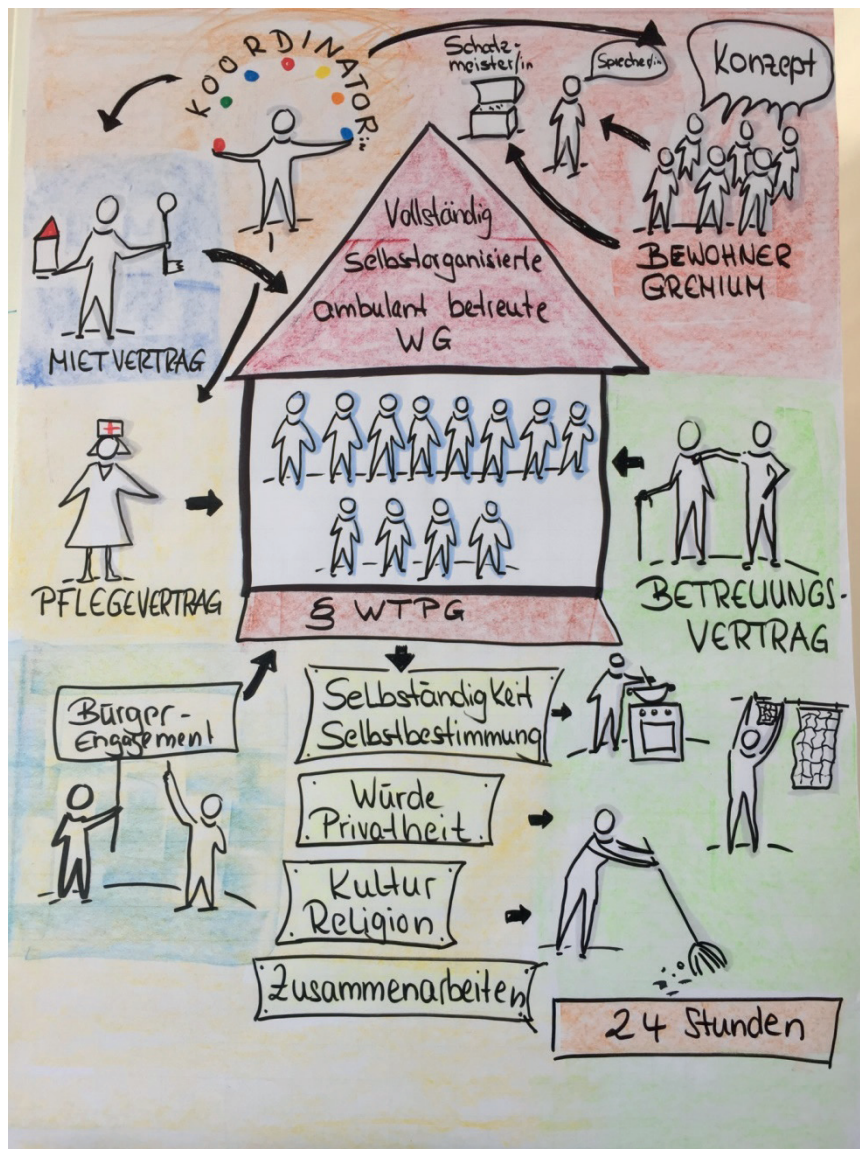 KOORDINATOR:in
Schatz-
meister/in
Sprecher/in
Konzept
BEWOHNER
GREMIUM
Vollständig
Selbstorganisierte
ambulant betreute
WG
MIETVERTRAG
PFLEGEVERTRAG
BETREUUNGS-
VERTRAG
§ WTPG
Bürger-
Engagement
Selbständigkeit
Selbstbestimmung
Würde
Privatheit
Kultur
Religion
Zusammenarbeiten
24 Stunden